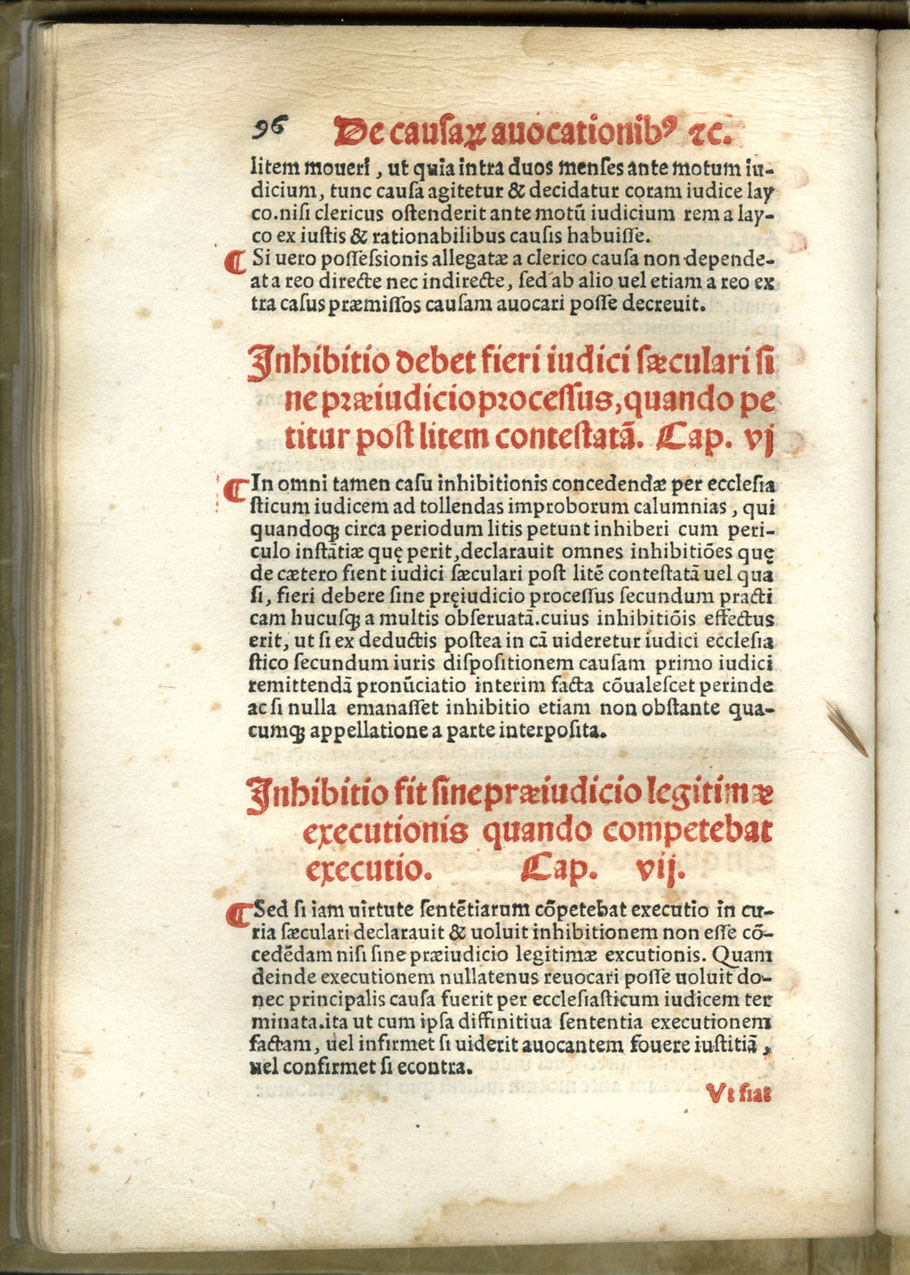 96 De causaꝝ auocationibꝰ ⁊c.
litem moueri, ut quia intra duos menses ante motum iu-
dicium, tunc causa agitetur & decidatur coram iudice lay
co.nisi clericus ostenderit ante motū iudicium rem a lay-
co ex iustis & rationabilibus causis habuisse.
¶ Si uero possessionis allegatæ a clerico causa non depende-
at a reo directe nec indirecte, sed ab alio uel etiam a reo ex
tra casus præmissos causam auocari posse decreuit.
Inhibitio debet fieri iudici sæculari si
ne præiudicio processus, quando pe
titur post litem contestatā. Cap. vj
¶ In omni tamen casu inhibitionis concedendæ per ecclesia
sticum iudicem ad tollendas improborum calumnias, qui
quandoqꝫ circa periodum litis petunt inhiberi cum peri-
culo instātiæ quę perit, declarauit omnes inhibitiões quę
de cætero fient iudici sæculari post litē contestatā uel qua
si, fieri debere sine pręiudicio processus secundum practi
cam hucusqꝫ a multis obseruatā.cuius inhibitiõis effectus
erit, ut si ex deductis postea in cā uideretur iudici ecclesia
stico secundum iuris dispositionem causam primo iudici
remittendā pronūciatio interim facta cōualescet perinde
ac si nulla emanasset inhibitio etiam non obstante qua-
cumqꝫ appellatione a parte interposita.
Inhibitio fit sine præiudicio legitimæ
executionis quando competebat
executio. Cap. vij.
¶ Sed si iam uirtute sentētiarum cōpetebat executio in cu-
ria sæculari declarauit & uoluit inhibitionem non esse cō-
cedēdam nisi sine præiudicio legitimæ excutionis. Quam
deinde executionem nullatenus reuocari posse uoluit do-
nec principalis causa fuerit per ecclesiasticum iudicem ter
minata.ita ut cum ipsa diffinitiua sententia executionem
factam, uel infirmet si uiderit auocantem fouere iustitiā,
uel confirmet si econtra.
Vt fiat